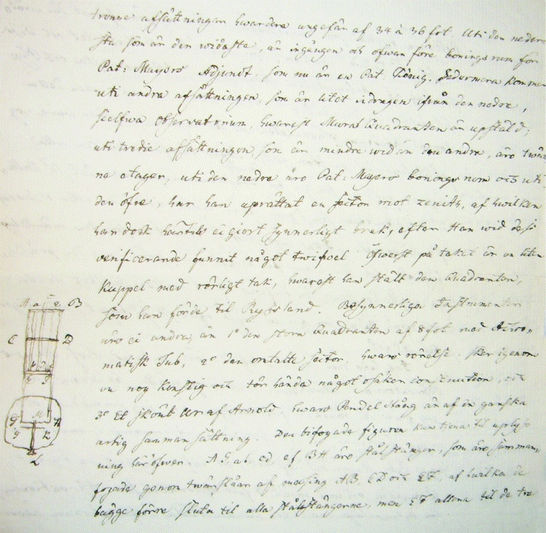 trenne afsättningar hwardera ungefär af 34 à 36 fot. Uti den neder
sta som är den widaste, är ingången och ofwan före boningsrum för
Pat: Mayers Adjunct, som nu är en Pat König. Sedermera kommer
uti andra afsättningen, som är litet indragen ifrån den nedre,
sielfwa Observatorium, hwarest Mural Quadranten är upstäld;
uti tredie afsättningen som är mindre wid än den andre, äro twän
ne etager, uti den nedre äro Pat: Mayers boningsrum och uti
den öfre, har uprättat en Sector mot zenith, af hwilken
han dock ei giort synnerligt bruk, efter Han wid dess
verificerande funnit något twifwel Öfwerst på taket är en liten
Kuppel med rörligt tak, hwarest han stält den Quadranten,
som han förde til Ryssland. Besynnerliga Instrumenter
äro ei andra, än 1° den stora Quadranten af 8 fot med Achro-
matisk Tub, 2° den omtalte Sector, hwars rörelse sker igenom
en nog konstig och tör hända något osäker construction, och
3° Et skönt Ur af Arnold, hwars Pendel stång är af en ganska
artig sammansättning. Den bifogade figuren kan tiena til uplys
ning häröfwer. AG, ab, cd, ef, BH äro stålstänger, som äro samman
fogade genom twärslåar af messing AB, CD och EF, af hwilka de
bägge förre sluta til alla stålstängerne, men EF allena til de tre
A a c e B
C D
E F
G H
L